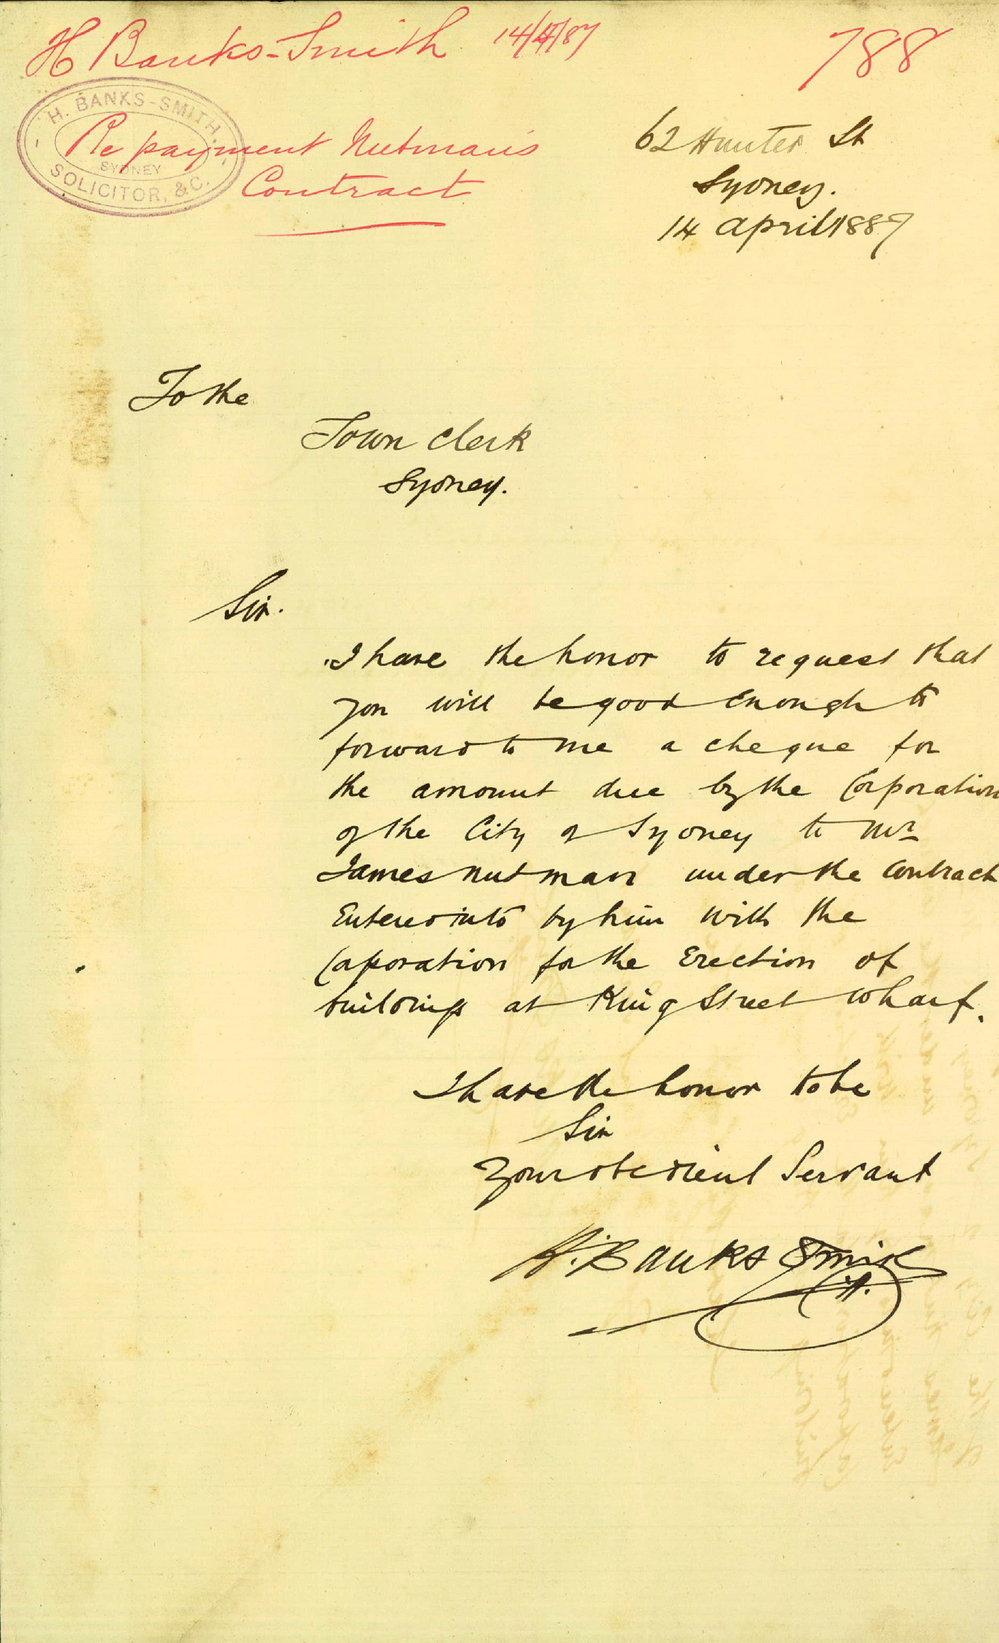 H Banks-Smith 14/4/87
788
H. BANKS-SMITH,
SYDNEY
SOLICITOR, &C.
Re payment Nutman's
Contract
62 Hunter St
Sydney.
14 April 1887
To the
Town Clerk
Sydney.
Sir.
I have the honor to request that
you will be good Enough to
forward to me a cheque for
the amount due by the Corporation
of the City of Sydney to Mr
James Nutman under the Contract
Entered into by him with the
Coporation for the Erection of
buildings at King Street Wharf.
I have the honor to be
Sir
Your obedient Servant
H. Banks Smith